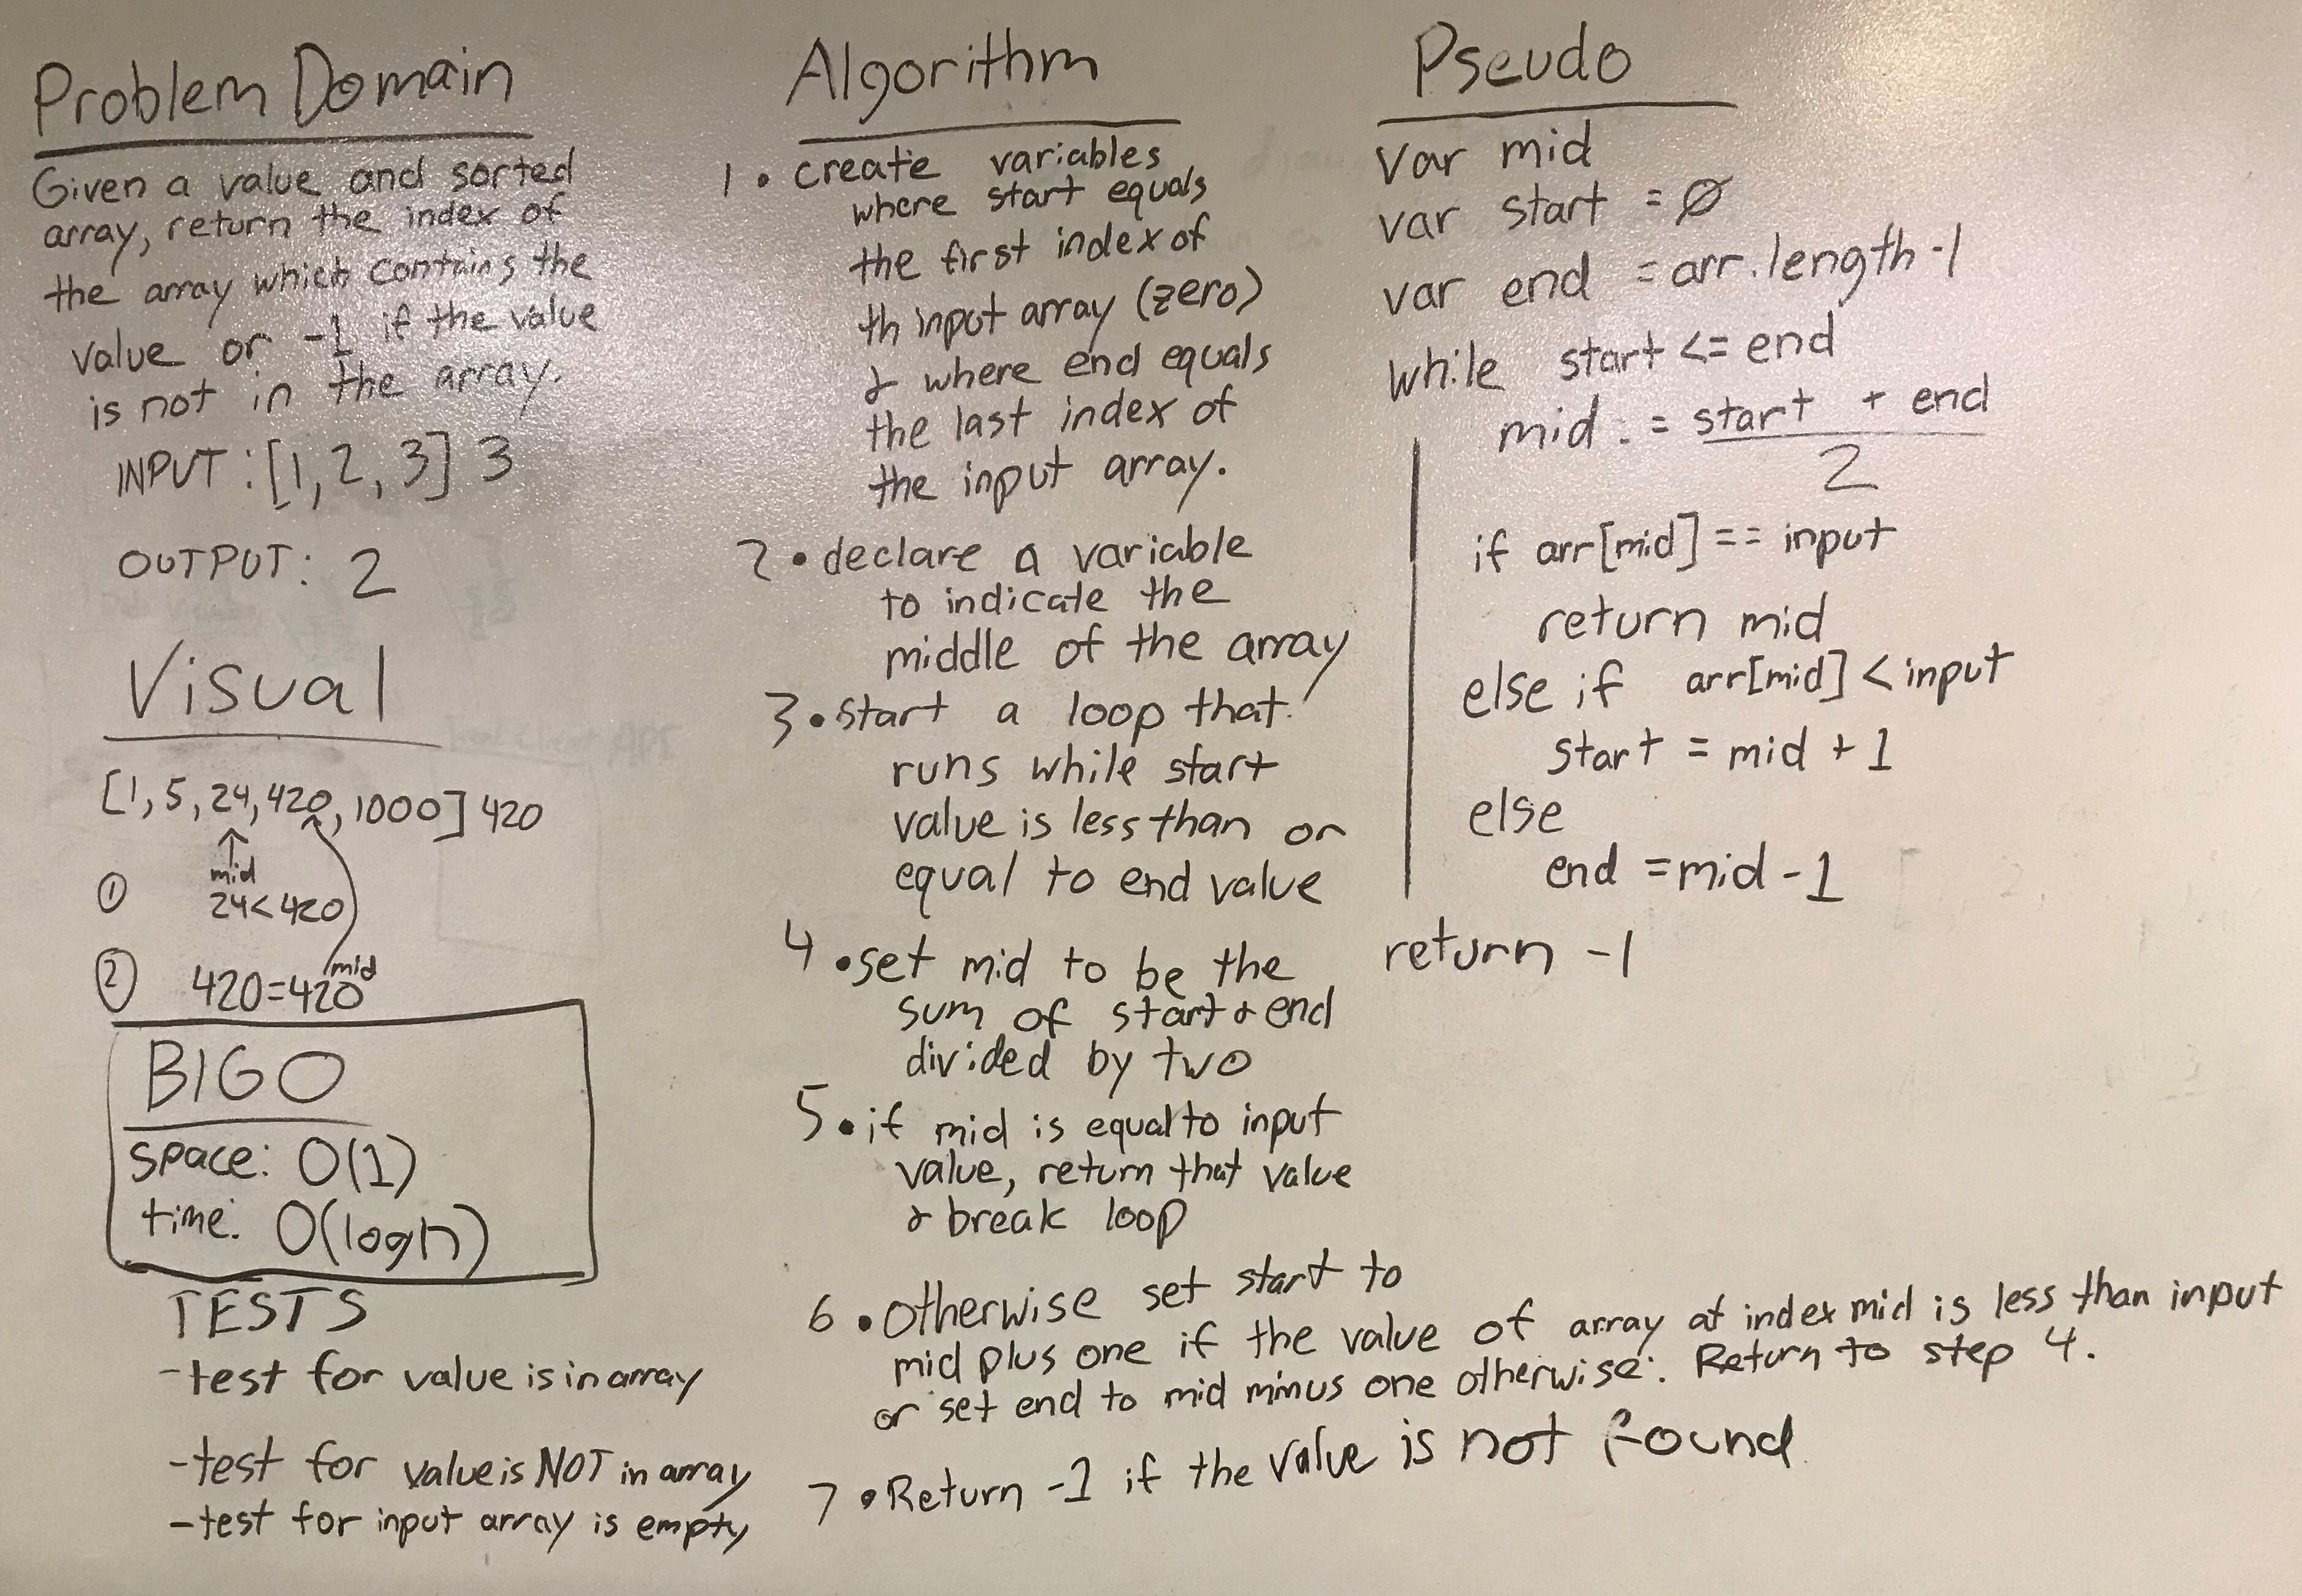 Problem Domain
Given a value and sorted
array, return the index of
the array which contains the
value or -1 if the value
is not in the array.
INPUT: [1, 2, 3] 3
OUTPUT: 2
Visual
[1, 5, 24, 420, 1000] 420
mid
① 24<420
mid
② 420=420
BIG O
space: O(1)
time: O(log n)
TESTS
-test for value is in array
-test for value is NOT in array
-test for input array is empty
Algorithm
1 • create variables
where start equals
the first index of
th input array (zero)
& where end equals
the last index of
the input array.
2 • declare a variable
to indicate the
middle of the array
3 • start a loop that
runs while start
value is less than or
equal to end value
4 • set mid to be the
sum of start & end
divided by two
5 • if mid is equal to input
value, return that value
& break loop
6 • otherwise set start to
mid plus one if the value of array at index mid is less than input
or set end to mid minus one otherwise. Return to step 4.
7 • Return -1 if the value is not found
Pseudo
var mid
var start = 0
var end = arr.length-1
while start <= end
mid := start + end
2
if arr[mid] == input
return mid
else if arr[mid] < input
start = mid + 1
else
end = mid - 1
return -1